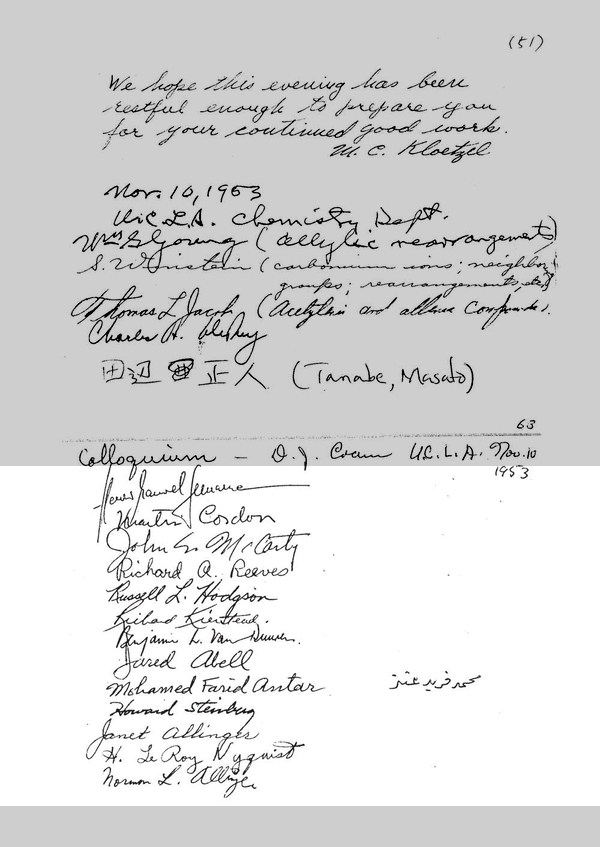 (51)
We hope this evening has been
restful enough to prepare you
for your continued good work.
M. C. Kloetzel
Nov. 10, 1953
U.C.L.A. Chemistry Dept.
Wm G Young (allylic rearrangements)
S. Winstein (carbonium ions; neighbor
groups; rearrangements, etc)
Thomas L Jacobs (Acetylenic and allene compounds).
Charles A.
田辺 正人 (Tanabe, Masato)
63
Colloquium – D. J. Cram U.C.L.A. Nov. 10
1953
Martin Cordon
John G. McCarty
Richard A. Reeves
Russell L. Hodgson
Richard Kierstead.
Benjamin L. Van Duuren.
Jared Abell
Mohamed Farid Antar محمد فريد عنتر
Howard Steinberg
Janet Allinger
H. LeRoy Nyquist
Norman L. Allinger